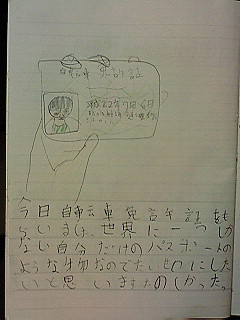 自転車 免許証
平成22年7月6日
今日自転車免許証をも
らいました。世界に一つしか
ない自分だけのパスポートの
ような物なのでたいせつにした
いと思います。たのしかった。